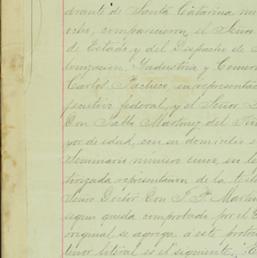 drante de Santa Catarina mu
compareciron el Señor
de Estado y del Despacho de
Industria y Comer
Carlos Pacheco en representac
jecutivo federal, y el Señor
Don Pablo Martinez del Rio
por de edad, con su domicilio e
Seminario número cinco, en la
torizada representacion de la
Señor Doctor Don J. P. Martin
segun queda comprobado por el
original se agrega a este proto
tenor literal es el siguiente.